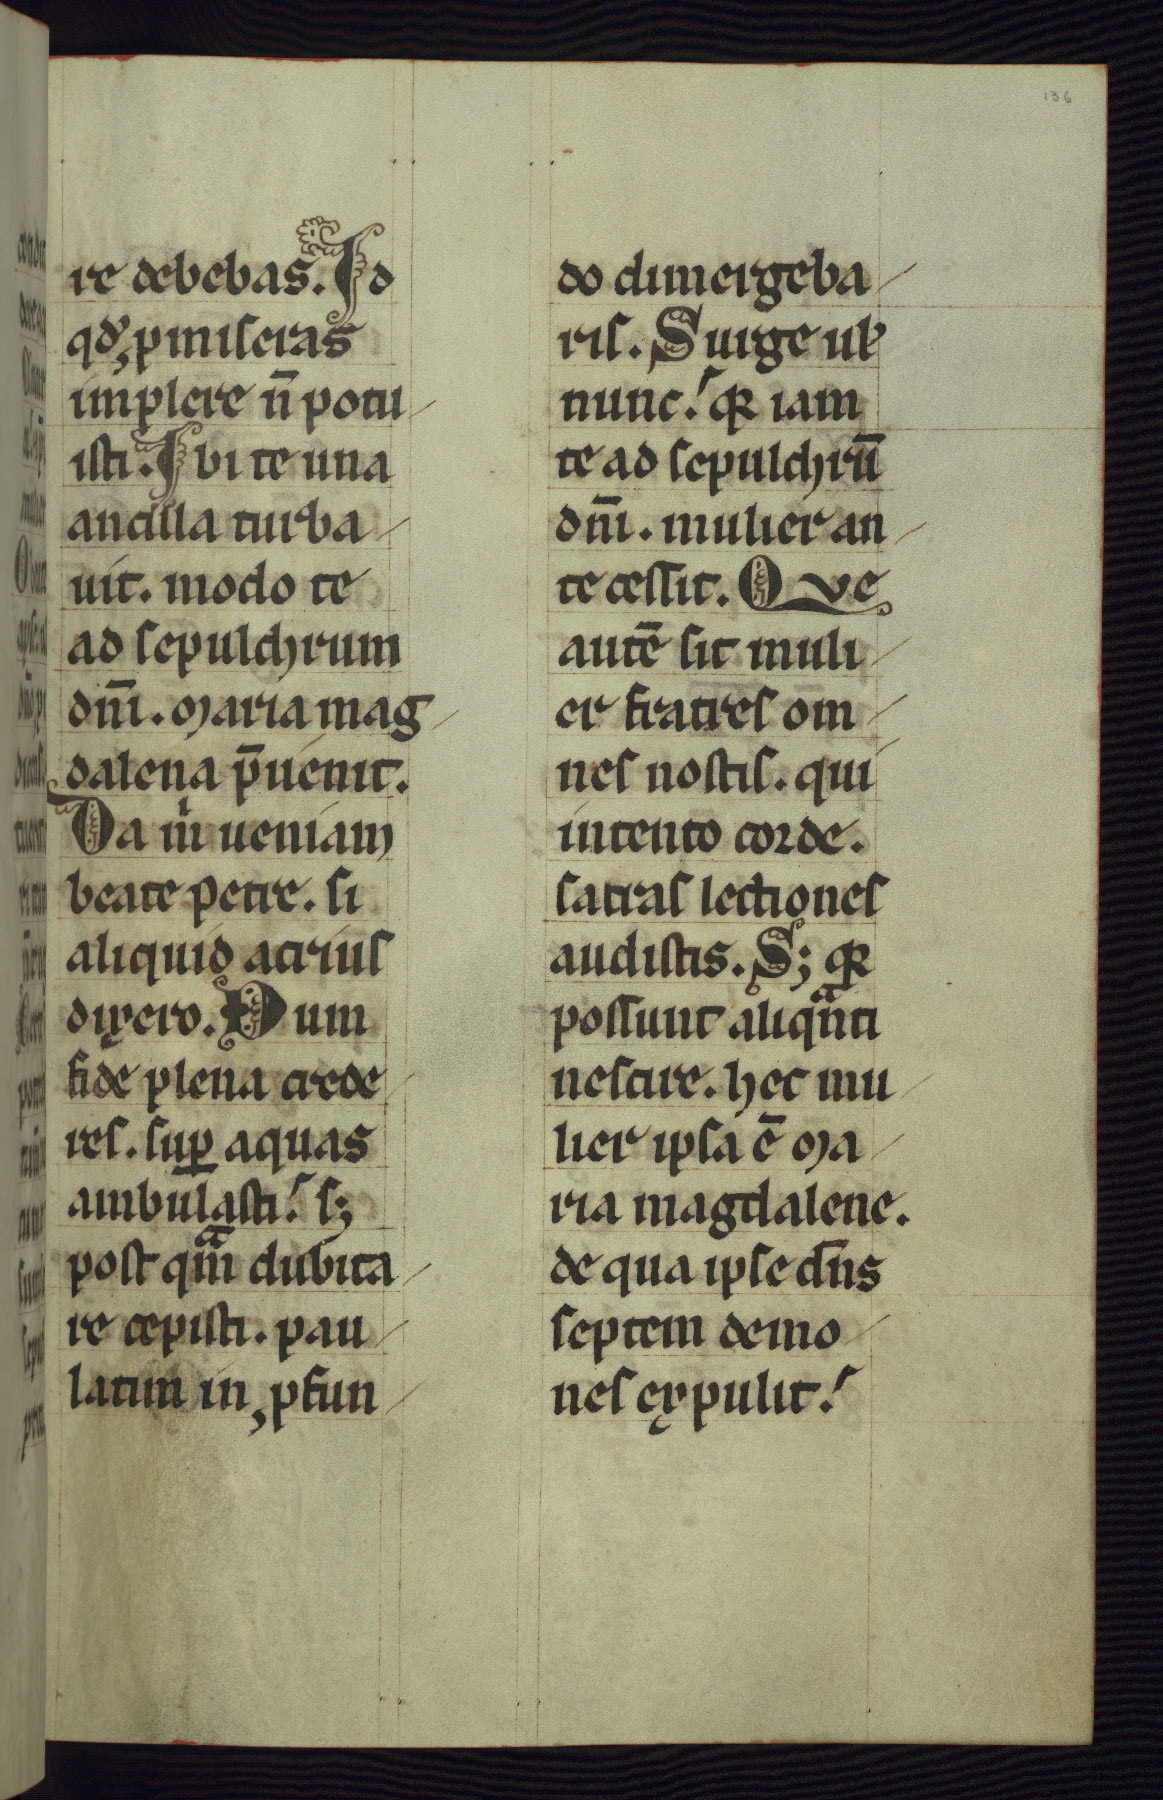 136
re debebas. Id
qd̉ ꝓmiseras
implere n̄ potu
isti. Ibi te una
ancilla turba
uit. modo te
ad sepulchrum
dn̄i. Maria mag
dalena p̄uenit.
Da m̍ ueniam
beate petre. si
aliquid acrius
dixero. Dum
fide plena crede
res. suꝑ aquas
ambulasti! sꝫ
post qᵃm dubita
re cepisti. pau
latim in ꝓfun
do dimergeba
ris. Surge uł
nunc! qꝛ iam
te ad sepulchrū
dn̄i. mulier an
tecessit. Que
autē sit muli
er fratres om
nes nostis. qui
intento corde.
sacras lectiones
audistis. Sꝫ qꝛ
possunt aliqᵃnti
nescire. hec mu
lier ipsa ē Ma
ria magdalene.
de qua ipse dn̄s
septem demo
nes expulit!